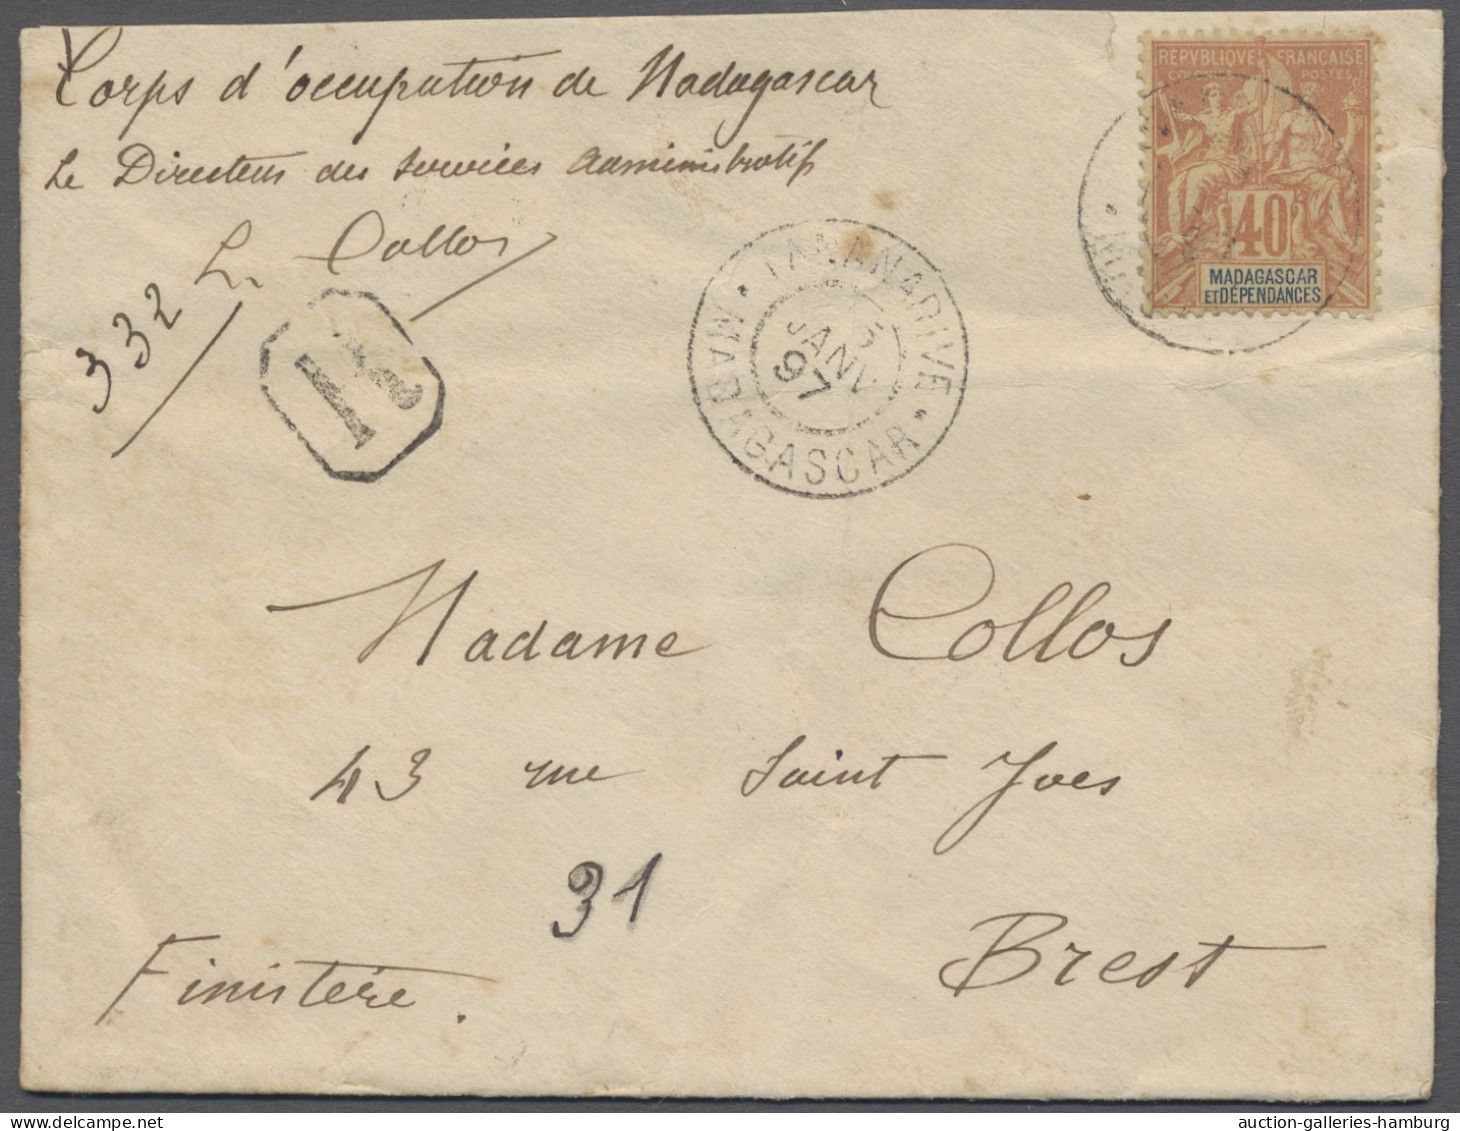 Corps d'occupation de Madagascar
Le Directeur des services administratifs
L. Collos
332
R
TANANARIVE
5
JANV
97
MADAGASCAR
REPVBLIQVE FRANÇAISE
COLONIES POSTES
40
MADAGASCAR
ET DÉPENDANCES
Madame Collos
43 rue Saint Yves
31
Brest
Finistère.
auction-galleries-hamburg